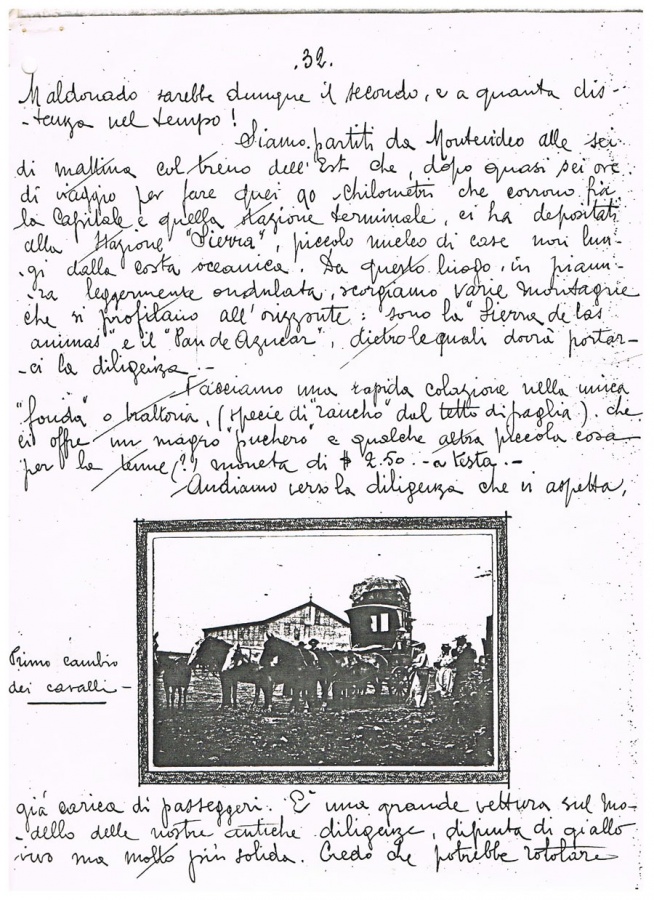 .32.
Maldonado sarebbe dunque il secondo, e a quanta dis-
-tanza nel tempo!
Siamo partiti da Montevideo alle sei
di mattina col treno dell'Est che, dopo quasi sei ore
di viaggio per fare quei 90 chilometri che corrono fra
la Capitale e quella stazione terminale, ci ha depositati
alla Stazione "Sierra", piccolo nucleo di case non lun-
-gi dalla costa oceanica. Da questo luogo, in pianu-
-ra leggermente ondulata, scorgiamo varie montagne
che si profilano all'orizzonte: sono la "Sierra de las
animas" e il "Pan de Azucar", dietro le quali dovrà portar-
-ci la diligenza.-
Facciamo una rapida colazione nella unica
"fonda" o trattoria, (specie di "rancho" dal tetto di paglia) che
ci offre un magro "puchero" e qualche altra piccola cosa
per la tenue (?) moneta di $ 2.50.- a testa.-
Andiamo verso la diligenza che vi aspetta,
Primo cambio
dei cavalli-
già carica di passeggeri. E' una grande vettura sul mo-
-dello delle nostre antiche diligenze, dipinta di giallo
vivo ma molto più solida. Credo che potrebbe rotolare